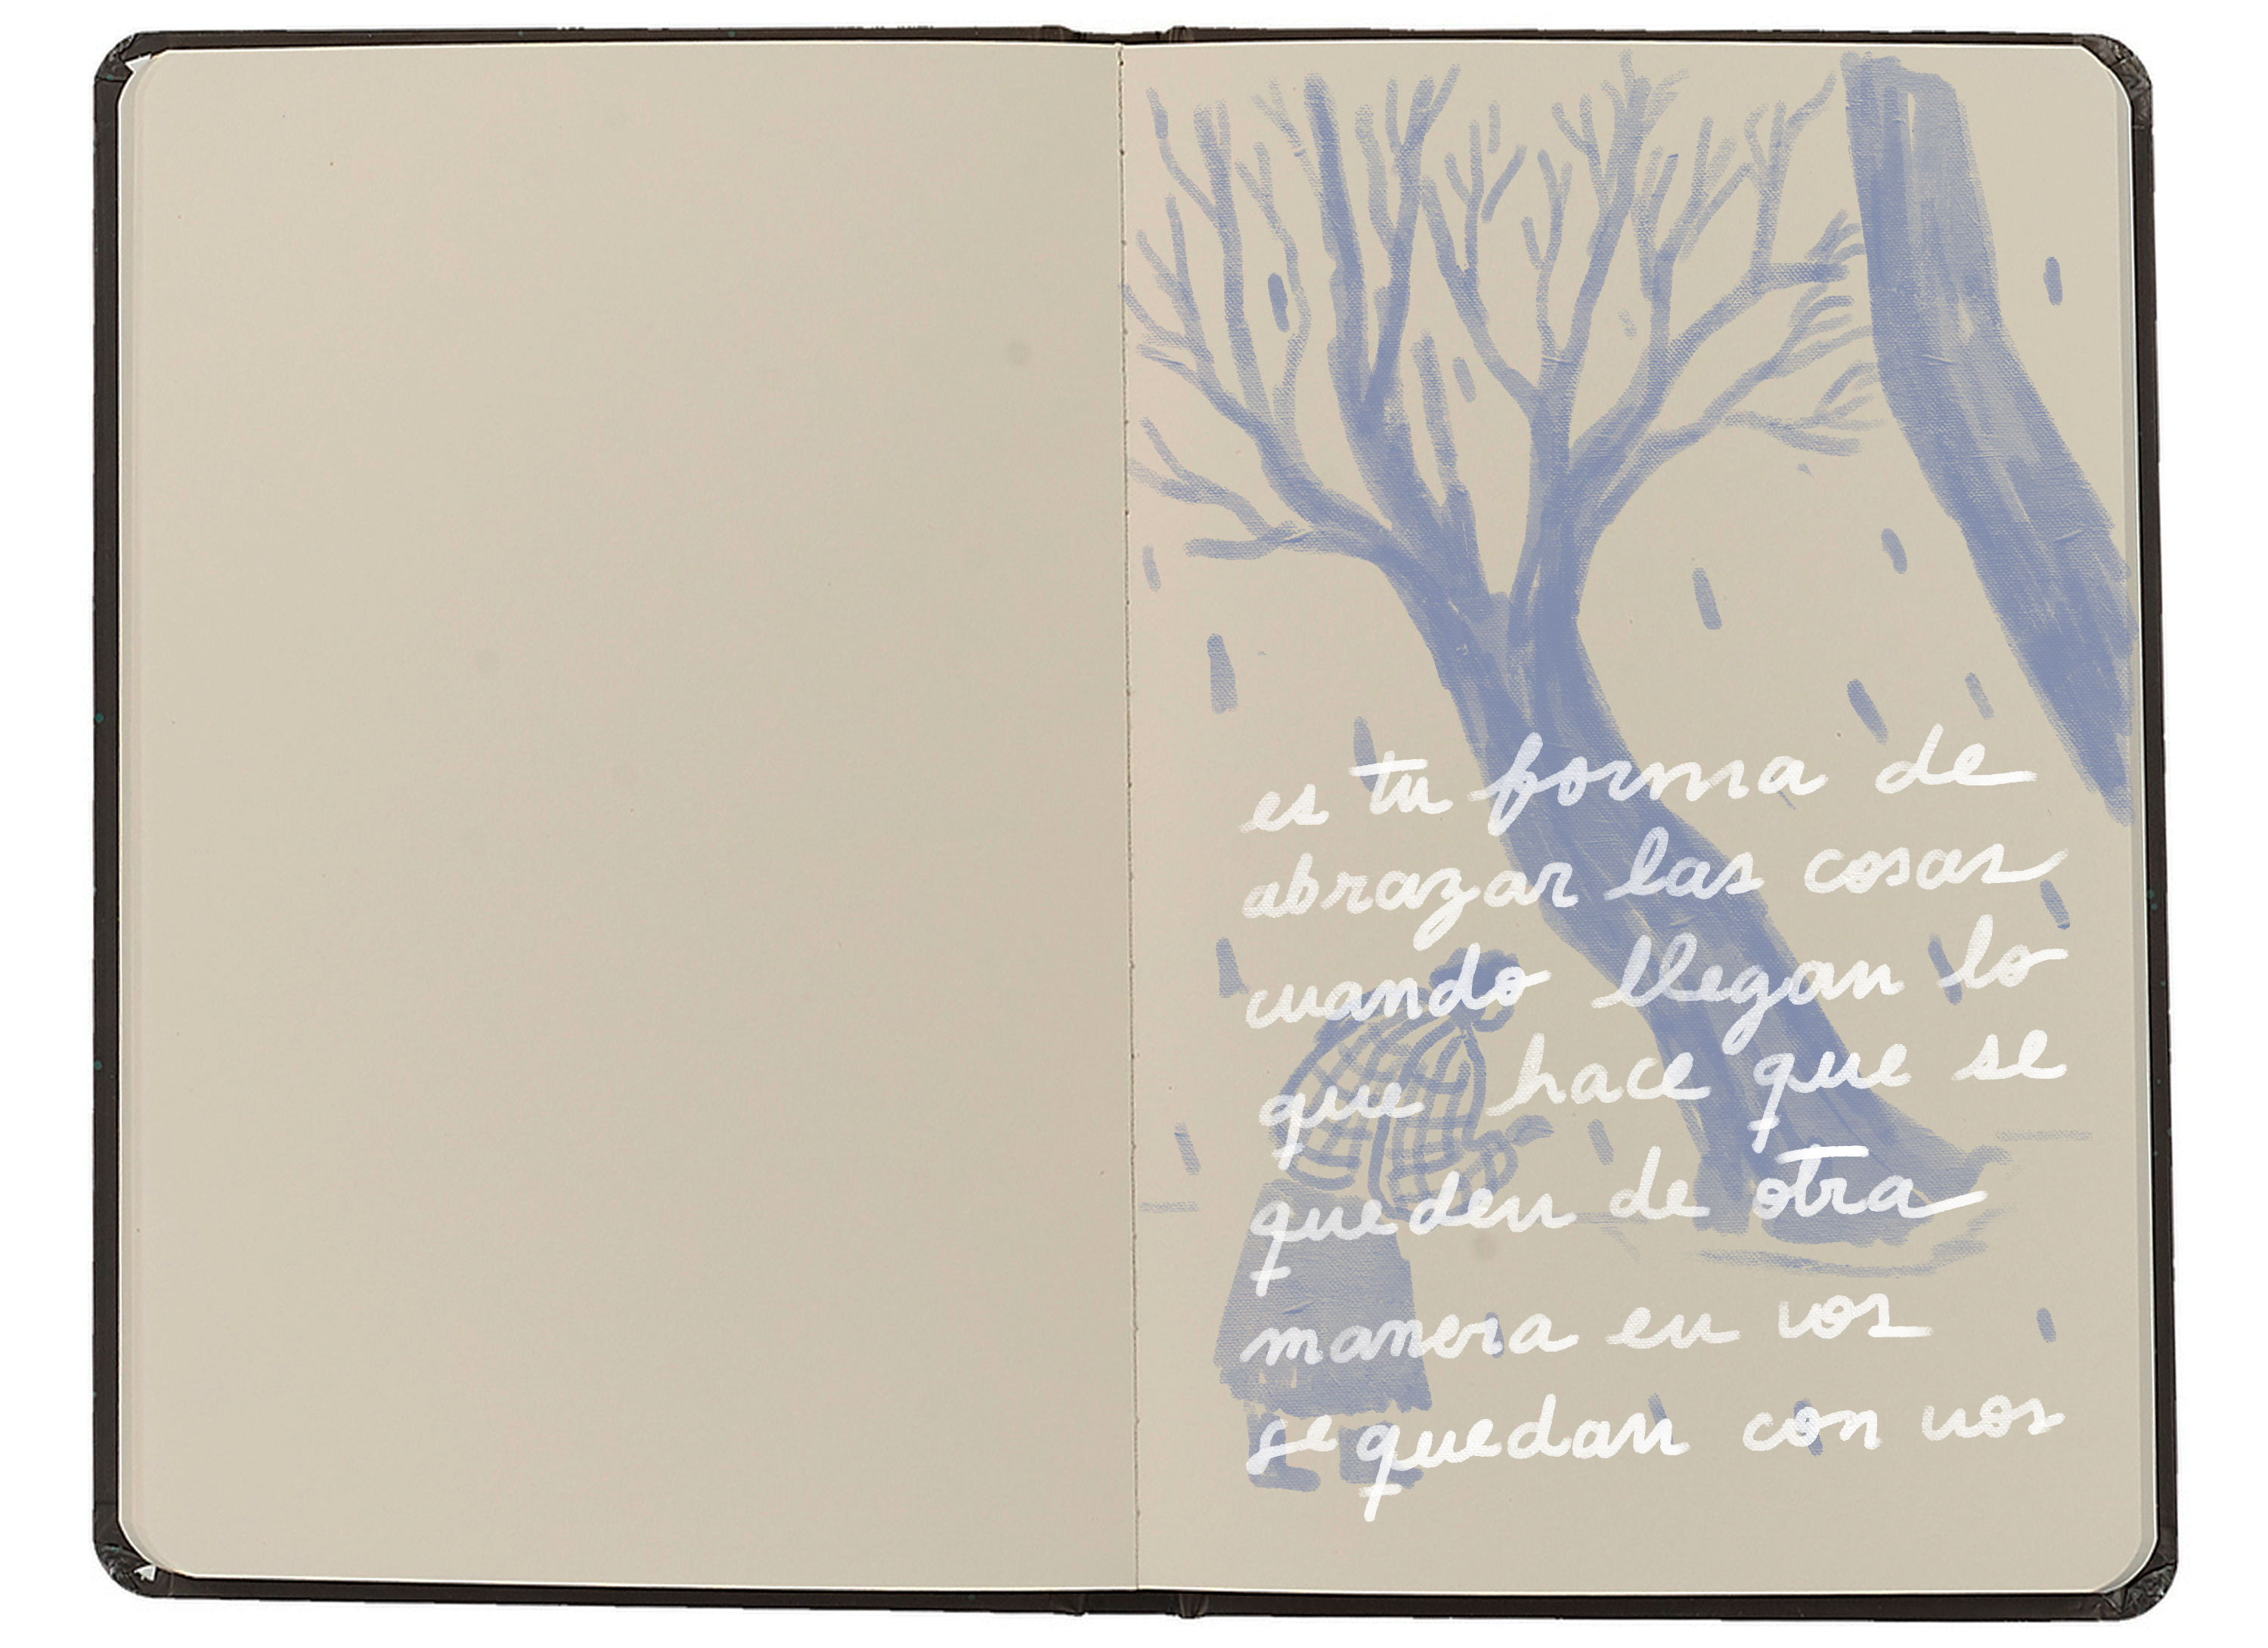 es tu forma de
abrazar las cosas
cuando llegan lo
que hace que se
queden de otra
manera en vos
se quedan con vos